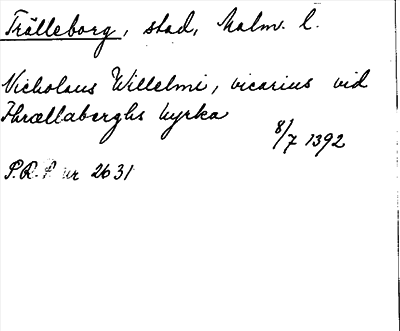 Trälleborg, stad, Malm. l.
Nicholaus Willelmi, vicarius vid
Thrællaberghs kyrka
8/7 1392
P.R.P nr 2631